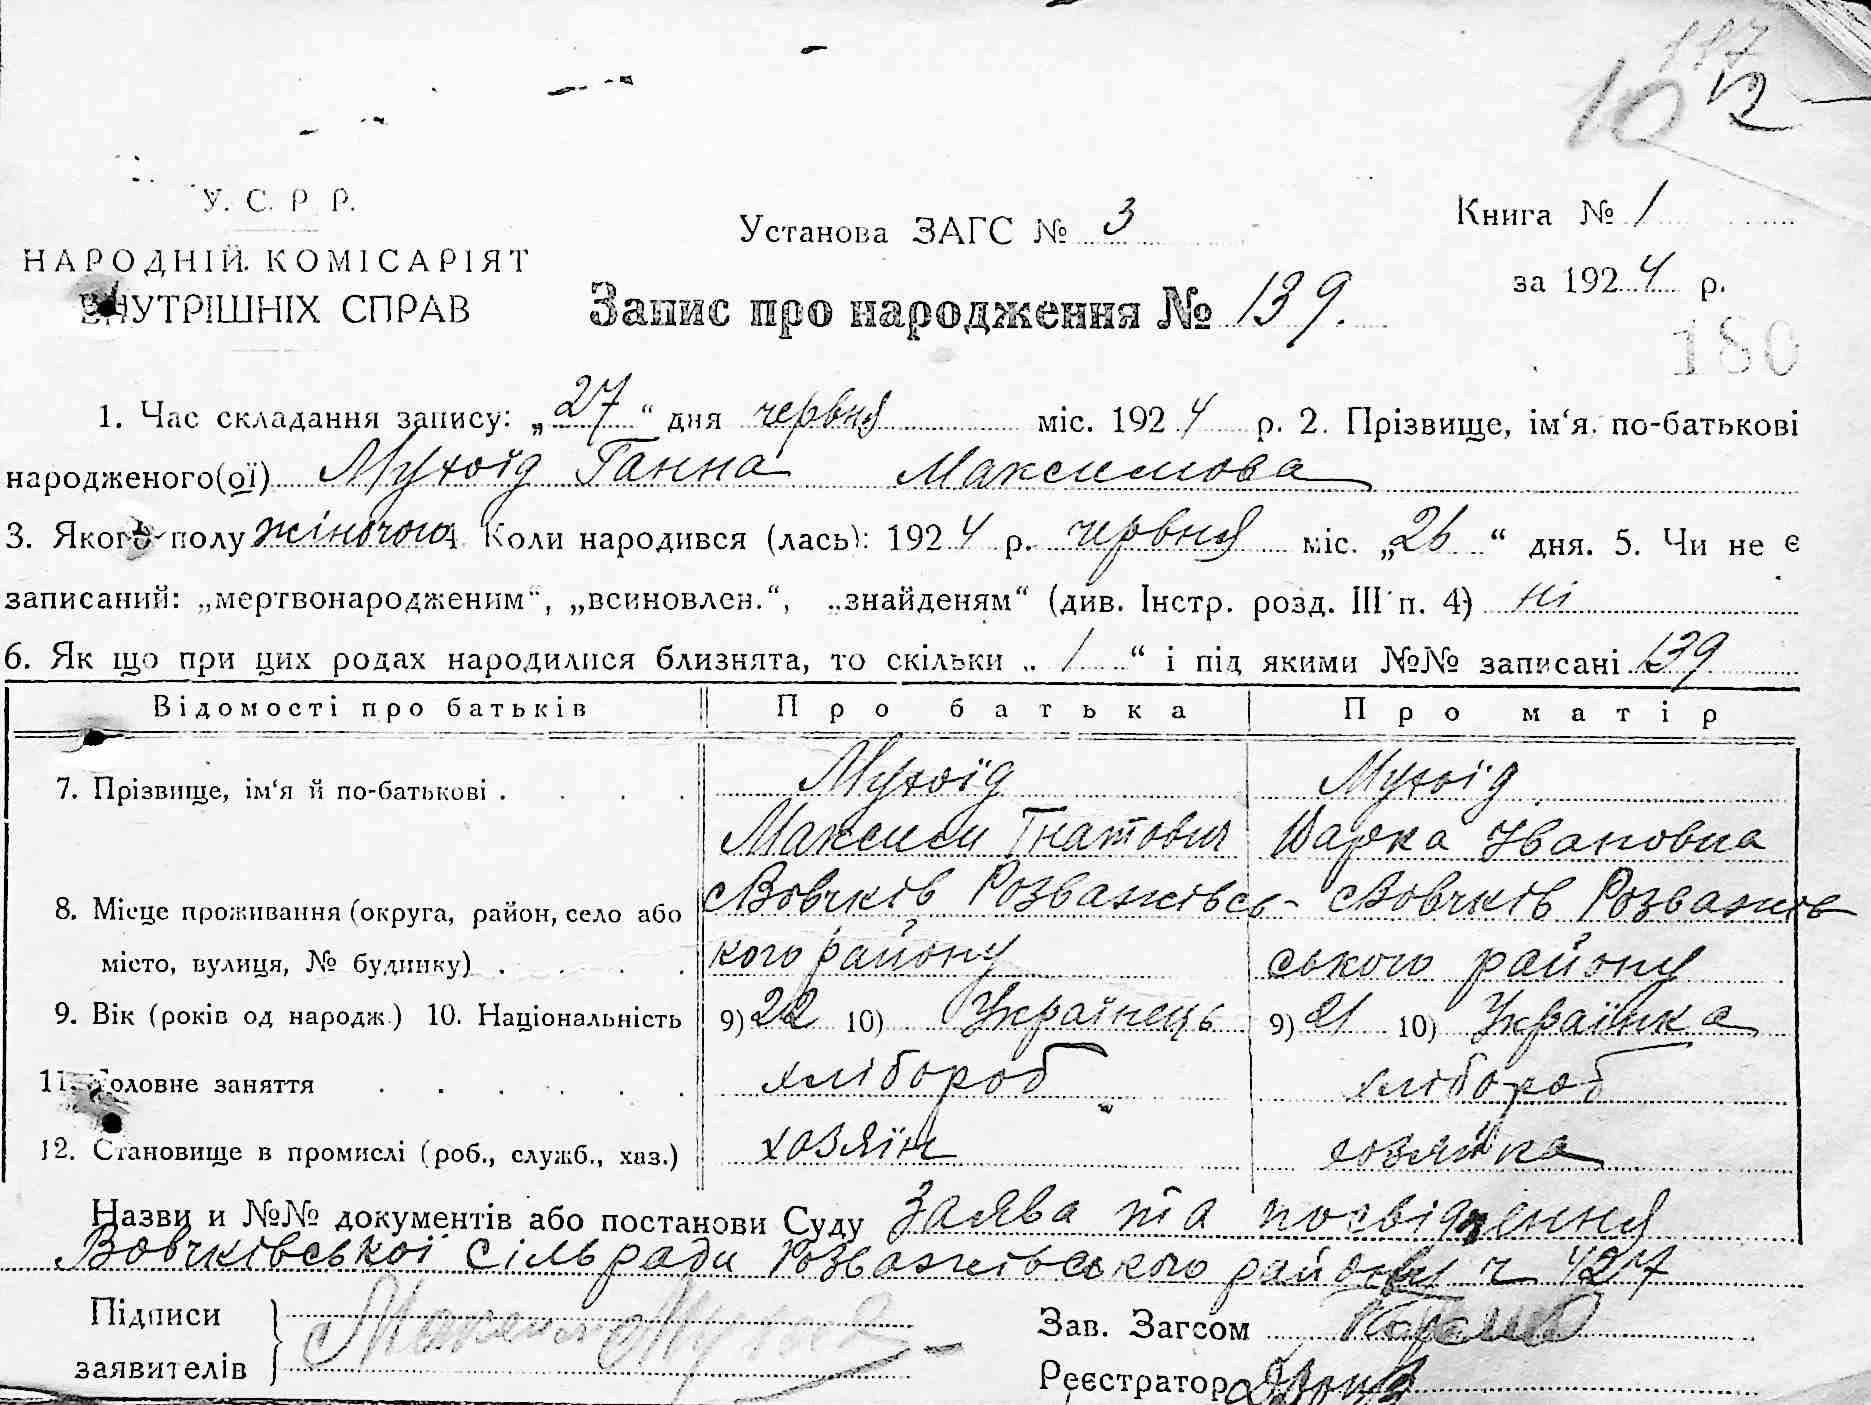 117
10 12
У. С. Р. Р.
НАРОДНІЙ КОМІСАРІЯТ
ВНУТРІШНІХ СПРАВ
Установа ЗАГС № 3
Книга № 1
за 1924 р.
Запис про народження № 139.
180
1. Час складання запису: „27“ дня червня міс. 1924 р. 2. Прізвище, ім‘я, по-батькові
народженого(ої) Мухоїд Ганна Максимова
3. Якого полу жіночого 4. Коли народився (лась): 1924 р. червня міс. „26“ дня. 5. Чи не є
записаний: „мертвонародженим“, „всиновлен.“, „знайденям“ (див. Інстр. розд. III п. 4) ні
6. Як що при цих родах народилися близнята, то скільки „1“ і під якими №№ записані 139
Відомості про батьків Про батька Про матір
7. Прізвище, ім‘я й по-батькові . . . . Мухоїд Мухоїд
Максим Гнатович Варка Івановна
8. Місце проживання (округа, район, село або Вовчків Розважівсь- Вовчків Розважів
місто, вулиця, № будинку) . . . . кого району ського району
9. Вік (років од народж.) 10. Національність 9) 22 10) Українець 9) 21 10) Українка
11. Головне заняття . . . . . . хлібороб хлібороб
12. Становище в промислі (роб., служб., хаз.) хозяїн хозяйка
Назви и №№ документів або постанови Суду Заява та посвідчення
Вовчківської сільради Розважівського району ч 427
Підписи
заявителів Максим Мухоїд
Зав. Загсом
Реєстратор